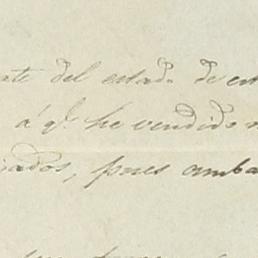 ate del estado de es
á q.e he vendido
iados, pues amba